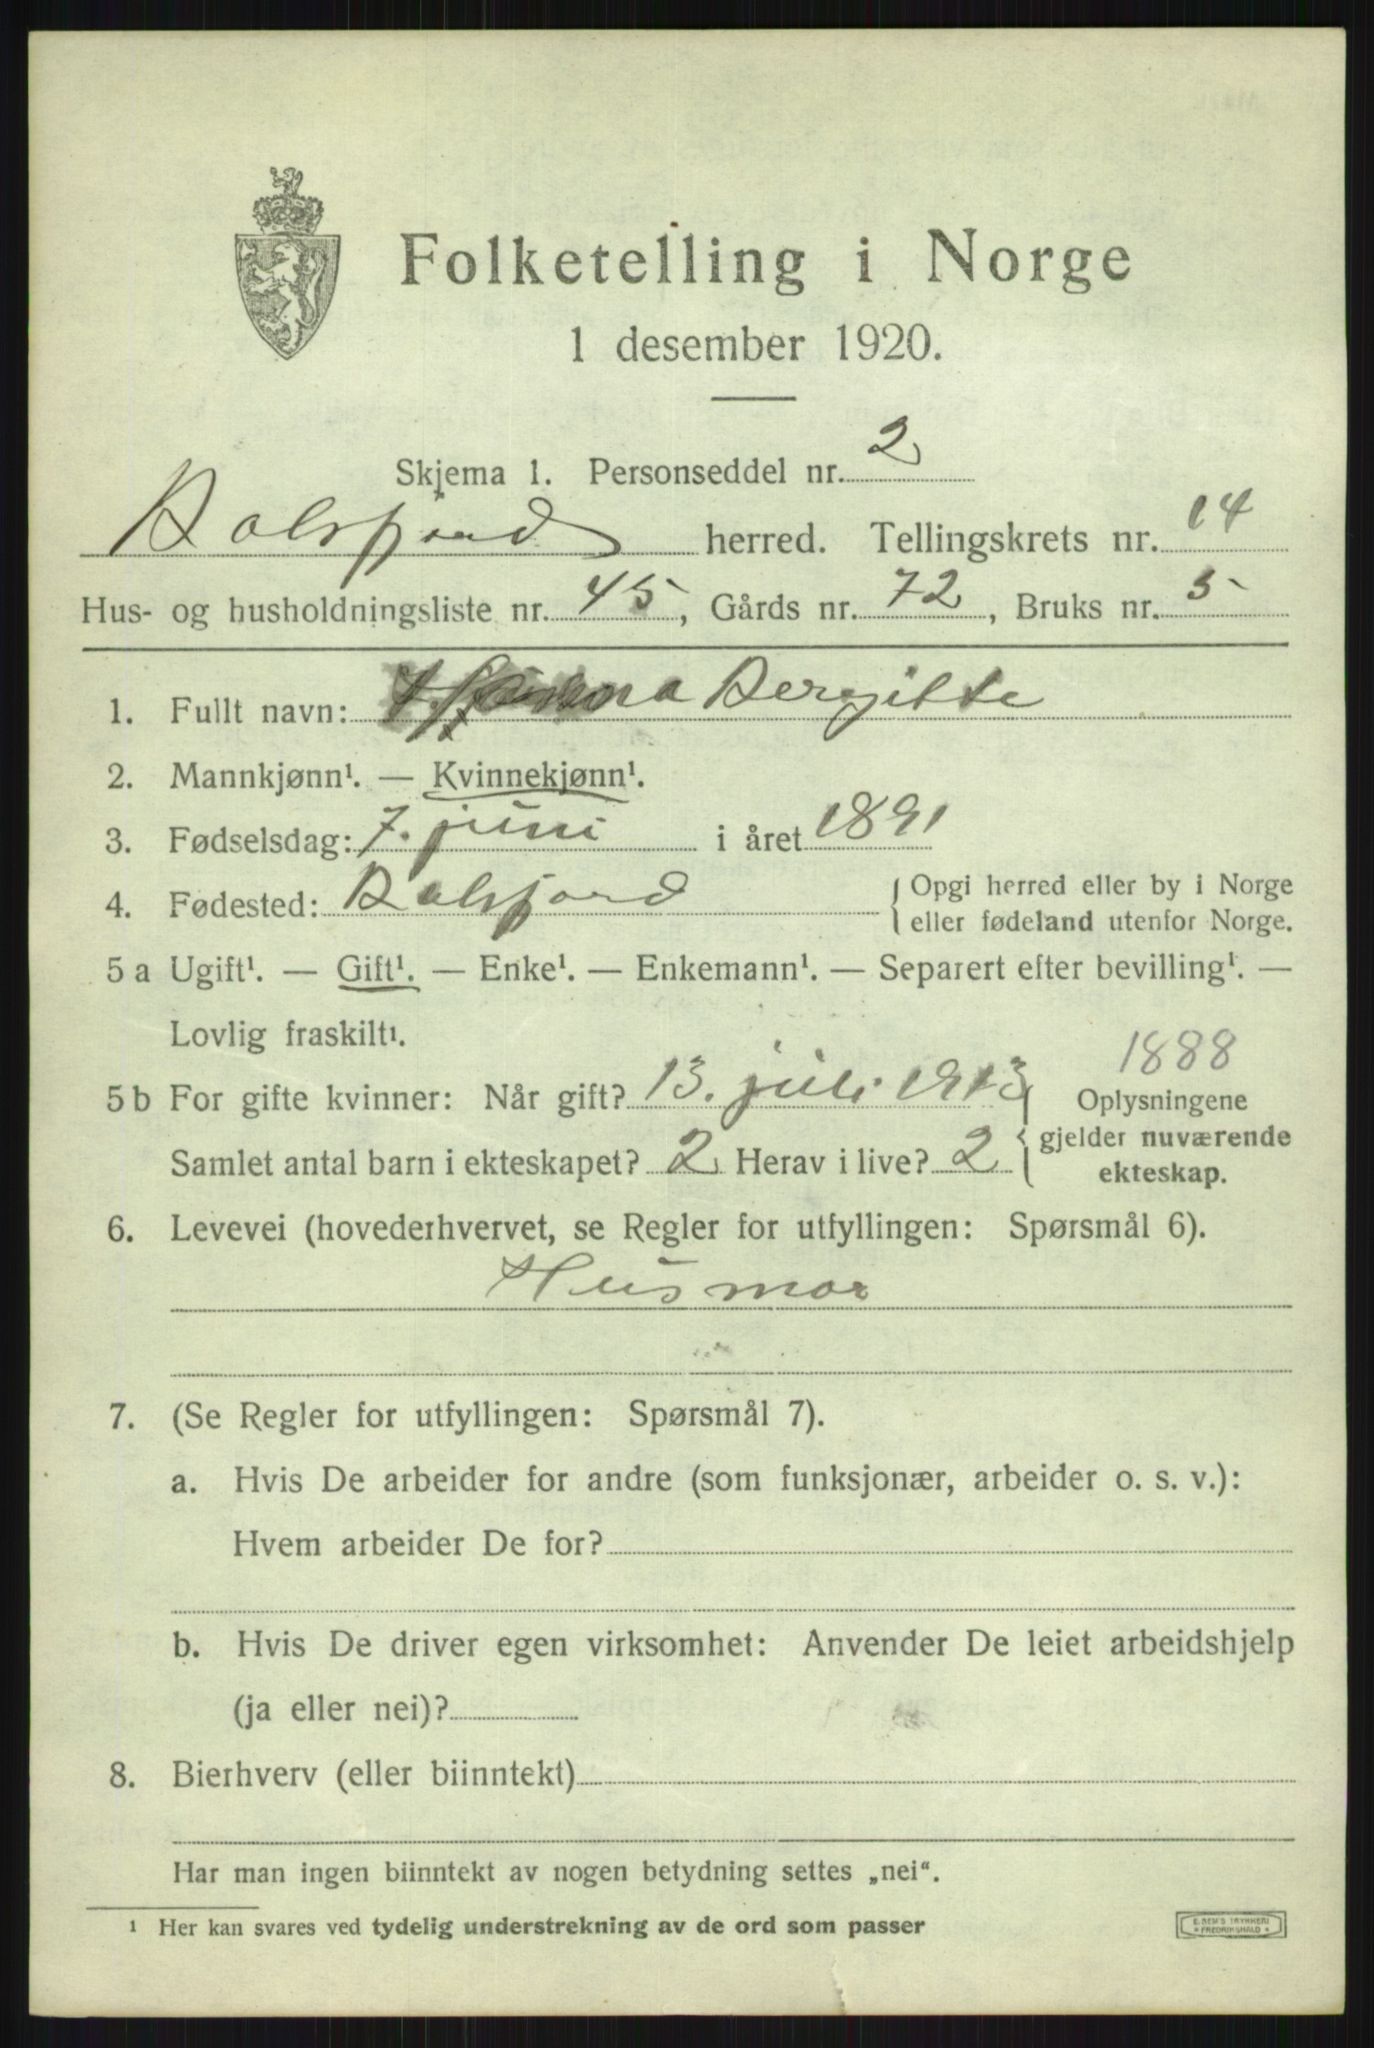 Folketelling i Norge
1 desember 1920.
Skjema 1. Personseddel nr. 2
Balsfjord herred. Tellingskrets nr. 14
Hus- og husholdningsliste nr. 45, Gårds nr. 72, Bruks nr. 5
1. Fullt navn: Bergitte
2. Mannkjønn¹. — Kvinnekjønn¹.
3. Fødselsdag: 7. juni i året 1891
4. Fødested: Balsfjord { Opgi herred eller by i Norge
eller fødeland utenfor Norge.
5 a Ugift¹. — Gift¹. — Enke¹. — Enkemann¹. — Separert efter bevilling¹. —
Lovlig fraskilt¹.
1888
5 b For gifte kvinner: Når gift? 13. juli 1913 { Oplysningene
gjelder nuværende
Samlet antal barn i ekteskapet? 2 Herav i live? 2
ekteskap.
6. Levevei (hovederhvervet, se Regler for utfyllingen: Spørsmål 6).
Husmor
7. (Se Regler for utfyllingen: Spørsmål 7).
a. Hvis De arbeider for andre (som funksjonær, arbeider o. s. v.):
Hvem arbeider De for?
b. Hvis De driver egen virksomhet: Anvender De leiet arbeidshjelp
(ja eller nei)?
8. Bierhverv (eller biinntekt)
Har man ingen biinntekt av nogen betydning settes „nei“.
¹ Her kan svares ved tydelig understrekning av de ord som passer
E. SEM'S TRYKKERI
FREDRIKSHALD